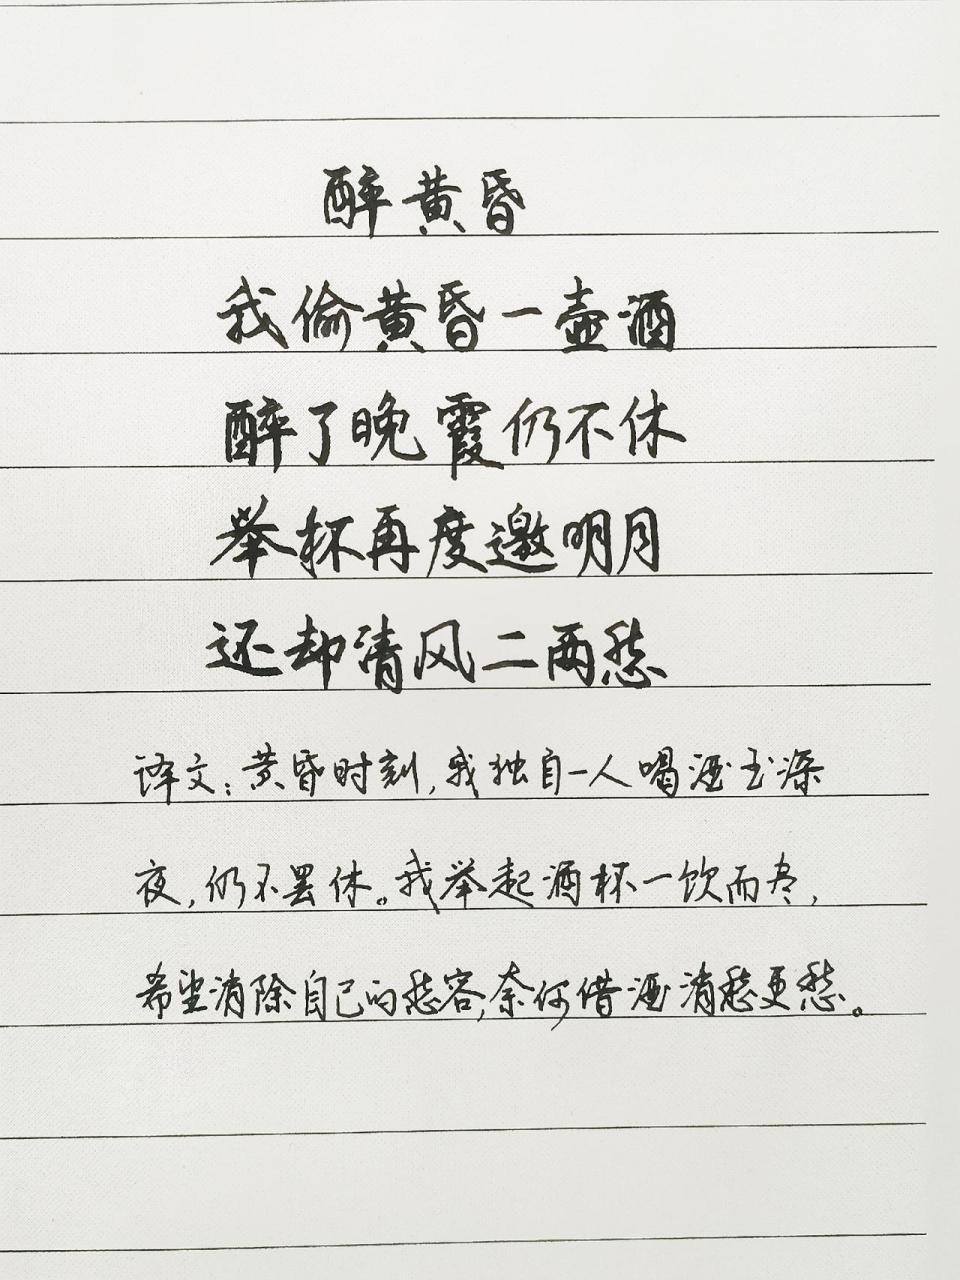 醉黄昏
我偷黄昏一壶酒
醉了晚霞仍不休
举杯再度邀明月
还却清风二两愁
译文：黄昏时刻，我独自一人喝酒至深
夜，仍不罢休。我举起酒杯一饮而尽，
希望消除自己的愁容，奈何借酒消愁更愁。